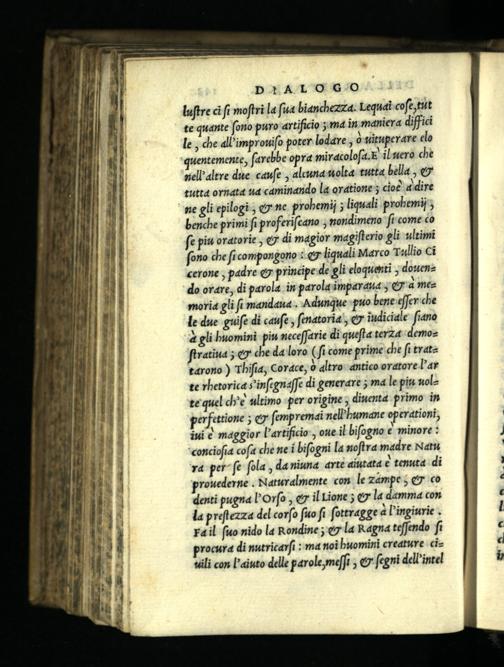 DIALOGO
lustre ci si mostri la sua bianchezza. Lequai cose, tut
te quante sono puro artificio; ma in maniera diffici
le, che all'improuiso poter lodare, ò uituperare elo
quentemente, sarebbe opra miracolosa. È il uero che
nell'altre due cause, alcuna uolta tutta bella, &
tutta ornata ua caminando la oratione; cioè à dire
ne gli epilogi, & ne prohemij; liquali prohemij,
benche primi si proferiscano, nondimeno si come co
se piu oratorie, & di magior magisterio gli ultimi
sono che si compongono: & liquali Marco Tullio Ci
cerone, padre & principe de gli eloquenti, douen-
do orare, di parola in parola imparaua, & à me-
moria gli si mandaua. Adunque può bene esser che
le due guise di cause, senatoria, & iudiciale siano
à gli huomini piu necessarie di questa terza demo-
stratiua; & che da loro (si come prime che si trat-
tarono) Thisia, Corace, ò altro antico oratore l'ar
te rhetorica s'insegnasse di generare; ma le piu uol-
te quel ch'è ultimo per origine, diuenta primo in
perfettione; & sempremai nell'humane operationi,
iui è maggior l'artificio, oue il bisogno è minore:
conciosia cosa che ne i bisogni la nostra madre Natu
ra per se sola, da niuna arte aiutata è tenuta di
prouederne. Naturalmente con le zampe, & co
denti pugna l'Orso, & il Lione; & la damma con
la prestezza del corso suo si sottragge à l'ingiurie.
Fa il suo nido la Rondine; & la Ragna tessendo si
procura di nutricarsi: ma noi huomini creature ci-
uili con l'aiuto delle parole, messi, & segni dell'intel